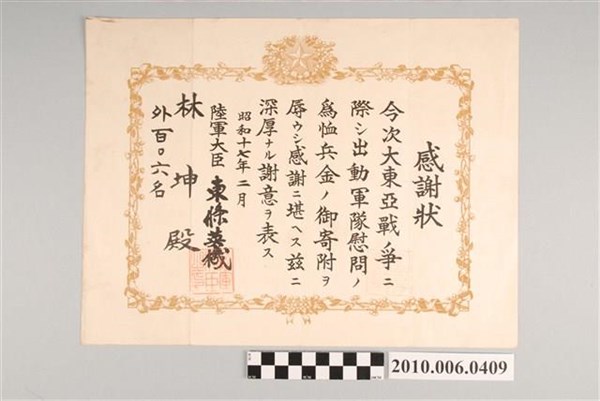 感謝狀
今次大東亞戰爭ニ
際シ出動軍隊慰問ノ
為恤兵金ノ御寄附ヲ
辱ウシ感謝ニ堪ヘス茲ニ
深厚ナル謝意ヲ表ス
昭和十七年二月
陸軍大臣 東條英機
林坤殿
外百〇六名
2010.006.0409